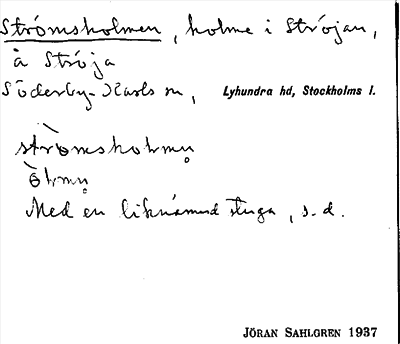 Strömsholmen, holme i Ströjan,
å Ströja
Söderby-Karls sn, Lyhundra hd, Stockholms l.
stròmsholmn̥
Med en liknämnd stuga, s.d.
JÖRAN SAHLGREN 1937